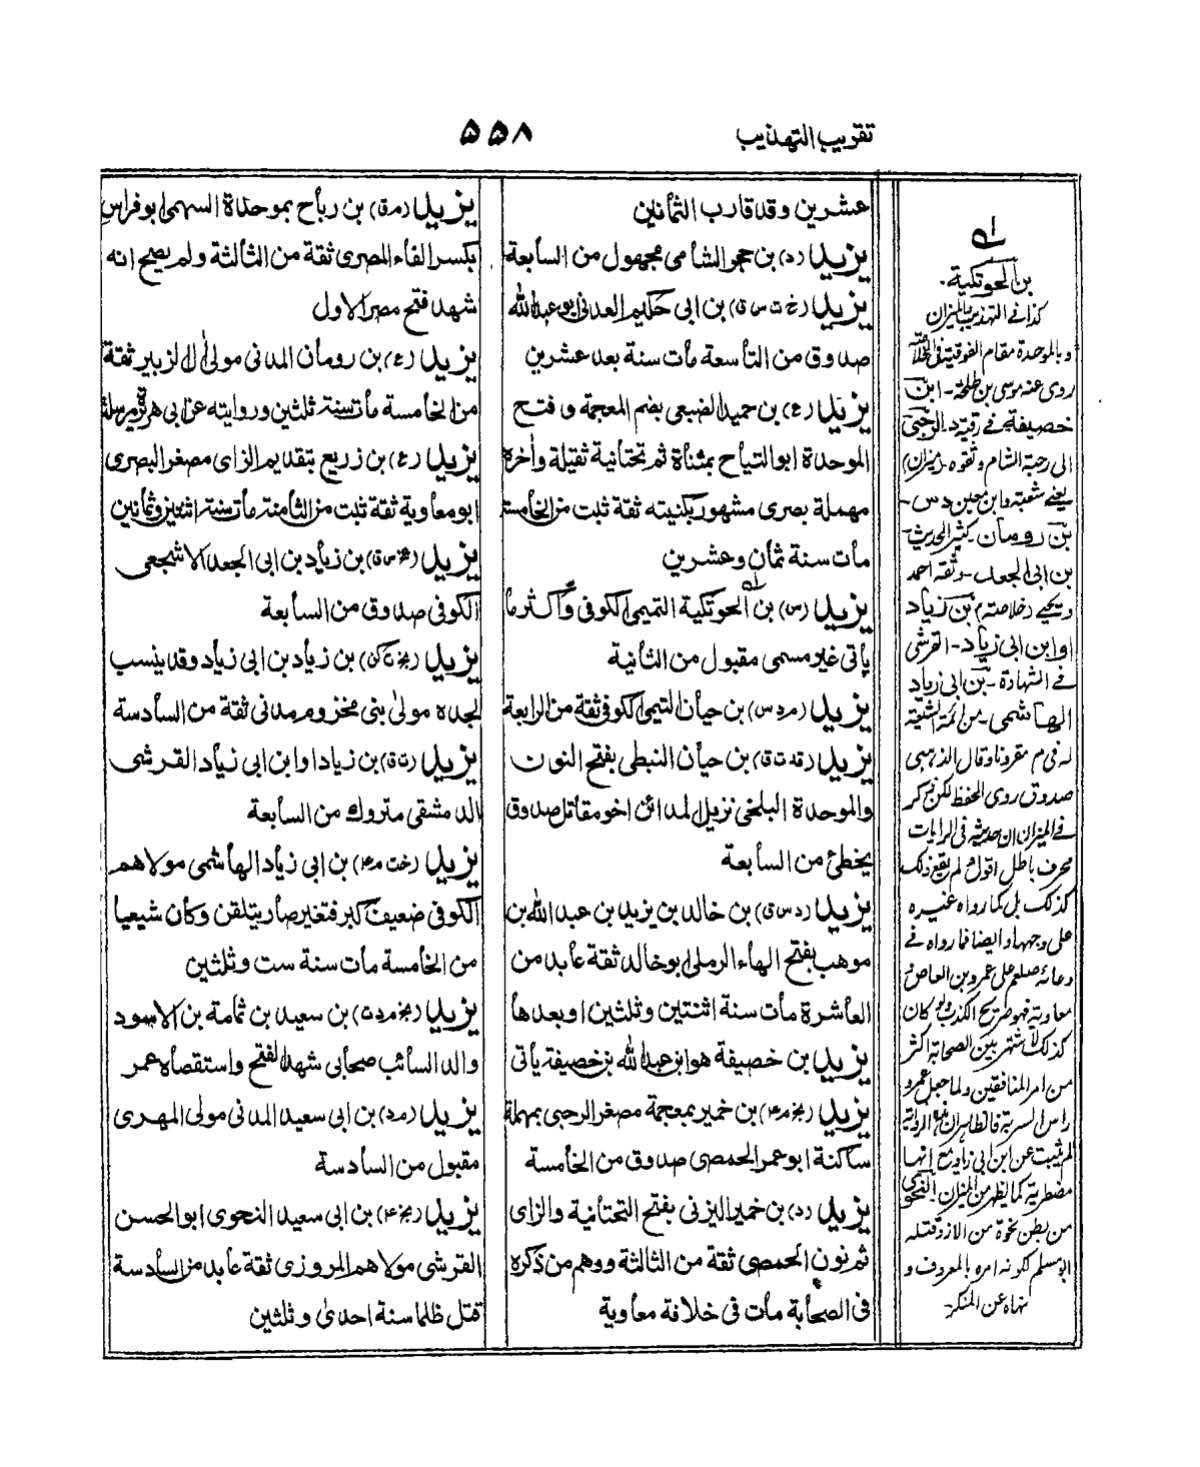 تقريب التهذيب
۵۵۸
عشرين وقد قارب الثمانين
يزيد (د) بن حجر الشامي مجهول من السابعة
يزيد (خت س ق) بن ابي حكيم العدني ابو عبدالله
صدوق من التاسعة مات سنة بعد عشرين
يزيد (ع) بن حميد الضبعي بضم المعجمة وفتح
الموحدة ابو التياح بمثناة ثم تحتانية ثقيلة وآخره
مهملة بصرى مشهور بكنيته ثقة ثبت من الخامسة
مات سنة ثمان وعشرين
يزيد (س) بن الحوتكية التميمي الكوفي واكثر ما
ياتي غير مسمى مقبول من الثانية
يزيد (م د س) بن حيان التيمي الكوفي ثقة من الرابعة
يزيد (قد ت ق) بن حيان النبطي بفتح النون
والموحدة البلخي نزيل المدائن اخو مقاتل صدوق
يخطئ من السابعة
يزيد (د س ق) بن خالد بن يزيد بن عبد الله بن
موهب بفتح الهاء الرملي ابو خالد ثقة عابد من
العاشرة مات سنة اثنتين وثلثين او بعدها
يزيد بن خصيفة هو ابن عبد الله بن خصيفة ياتي
يزيد (بخ م٤) بن خمير بمعجمة مصغر الرحبي بمهملة
ساكنة ابو عمر الحمصي صدوق من الخامسة
يزيد (د) بن خمير اليزني بفتح التحتانية والزاى
ثم نون الحمصي ثقة من الثالثة ووهم من ذكره
في الصحابة مات في خلافة معاوية
يزيد (م ق) بن رباح بموحدة السهمي ابو فراس
بكسر الفاء المصرى ثقة من الثالثة ولم يصح انه
شهد فتح مصر الاول
يزيد (ع) بن رومان المدني مولى آل الزبير ثقة
من الخامسة مات سنة ثلثين وروايته عن ابي هريرة مرسلة
يزيد (ع) بن زريع بتقديم الزاى مصغر البصرى
ابو معاوية ثقة ثبت من الثامنة مات سنة اثنتين وثمانين
يزيد (عخ س ق) بن زياد بن ابي الجعد الاشجعي
الكوفي صدوق من السابعة
يزيد (بخ ت كن) بن زياد بن ابي زياد وقد ينسب
لجده مولى بني مخزوم مدني ثقة من السادسة
يزيد (ت ق) بن زياد او ابن ابي زياد القرشي
الدمشقي متروك من السابعة
يزيد (خت م٤) بن ابي زياد الهاشمي مولاهم
الكوفي ضعيف كبر فتغير صار يتلقن وكان شيعيا
من الخامسة مات سنة ست وثلثين
يزيد (بخ م د ت) بن سعيد بن ثمامة بن الاسود
والد السائب صحابي شهد الفتح واستقضاه عمر
يزيد (مد) بن ابي سعيد المدني مولى المهرى
مقبول من السادسة
يزيد (بخ ٤) بن ابي سعيد النحوى ابو الحسن
القرشي مولاهم المروزى ثقة عابد من السادسة
قتل ظلما سنة احدى وثلثين
بن الحوتكية.
كذا في التهذيب والميزان
وبالموحدة مقام الفوقية في
روى عنه موسى بن طلحة - ابن
خصيفة في الرحبي
الى رحبة الشام وثقوه (ميزان)
يعني شعبة وابن معين وس -
بن رومان - كثير الحديث -
بن ابي الجعد - وثقه احمد
ويحيى (خلاصة) بن زياد
او ابن ابي زياد - القرشي
في الشهادة - بن ابي زياد
الهاشمي - من ائمة الشيعة
له في م مقرونا وقال الذهبي
صدوق ردى الحفظ لكن ذكر
في الميزان ان حديثه في الرايات
باطل اقول لم يقع ذلك
كذلك بل كما رواه غيره
على وجهها وايضا فما رواه في
دعائه صلعم على عمرو بن العاص و
معاوية فهو صريح الكذب كان
كذلك لاشتهر بين الصحابة اكثر
من امر المنافقين ولما جعل عمرو
راس السرية فالظاهر ان هذه الرواية
لم تثبت عن ابن ابي زياد مع انها
مضطربة كما يظهر من الميزان النحوى
من بطن نحوة من الازد قتله
ابو مسلم لكونه امره بالمعروف و
نهاه عن المنكر -